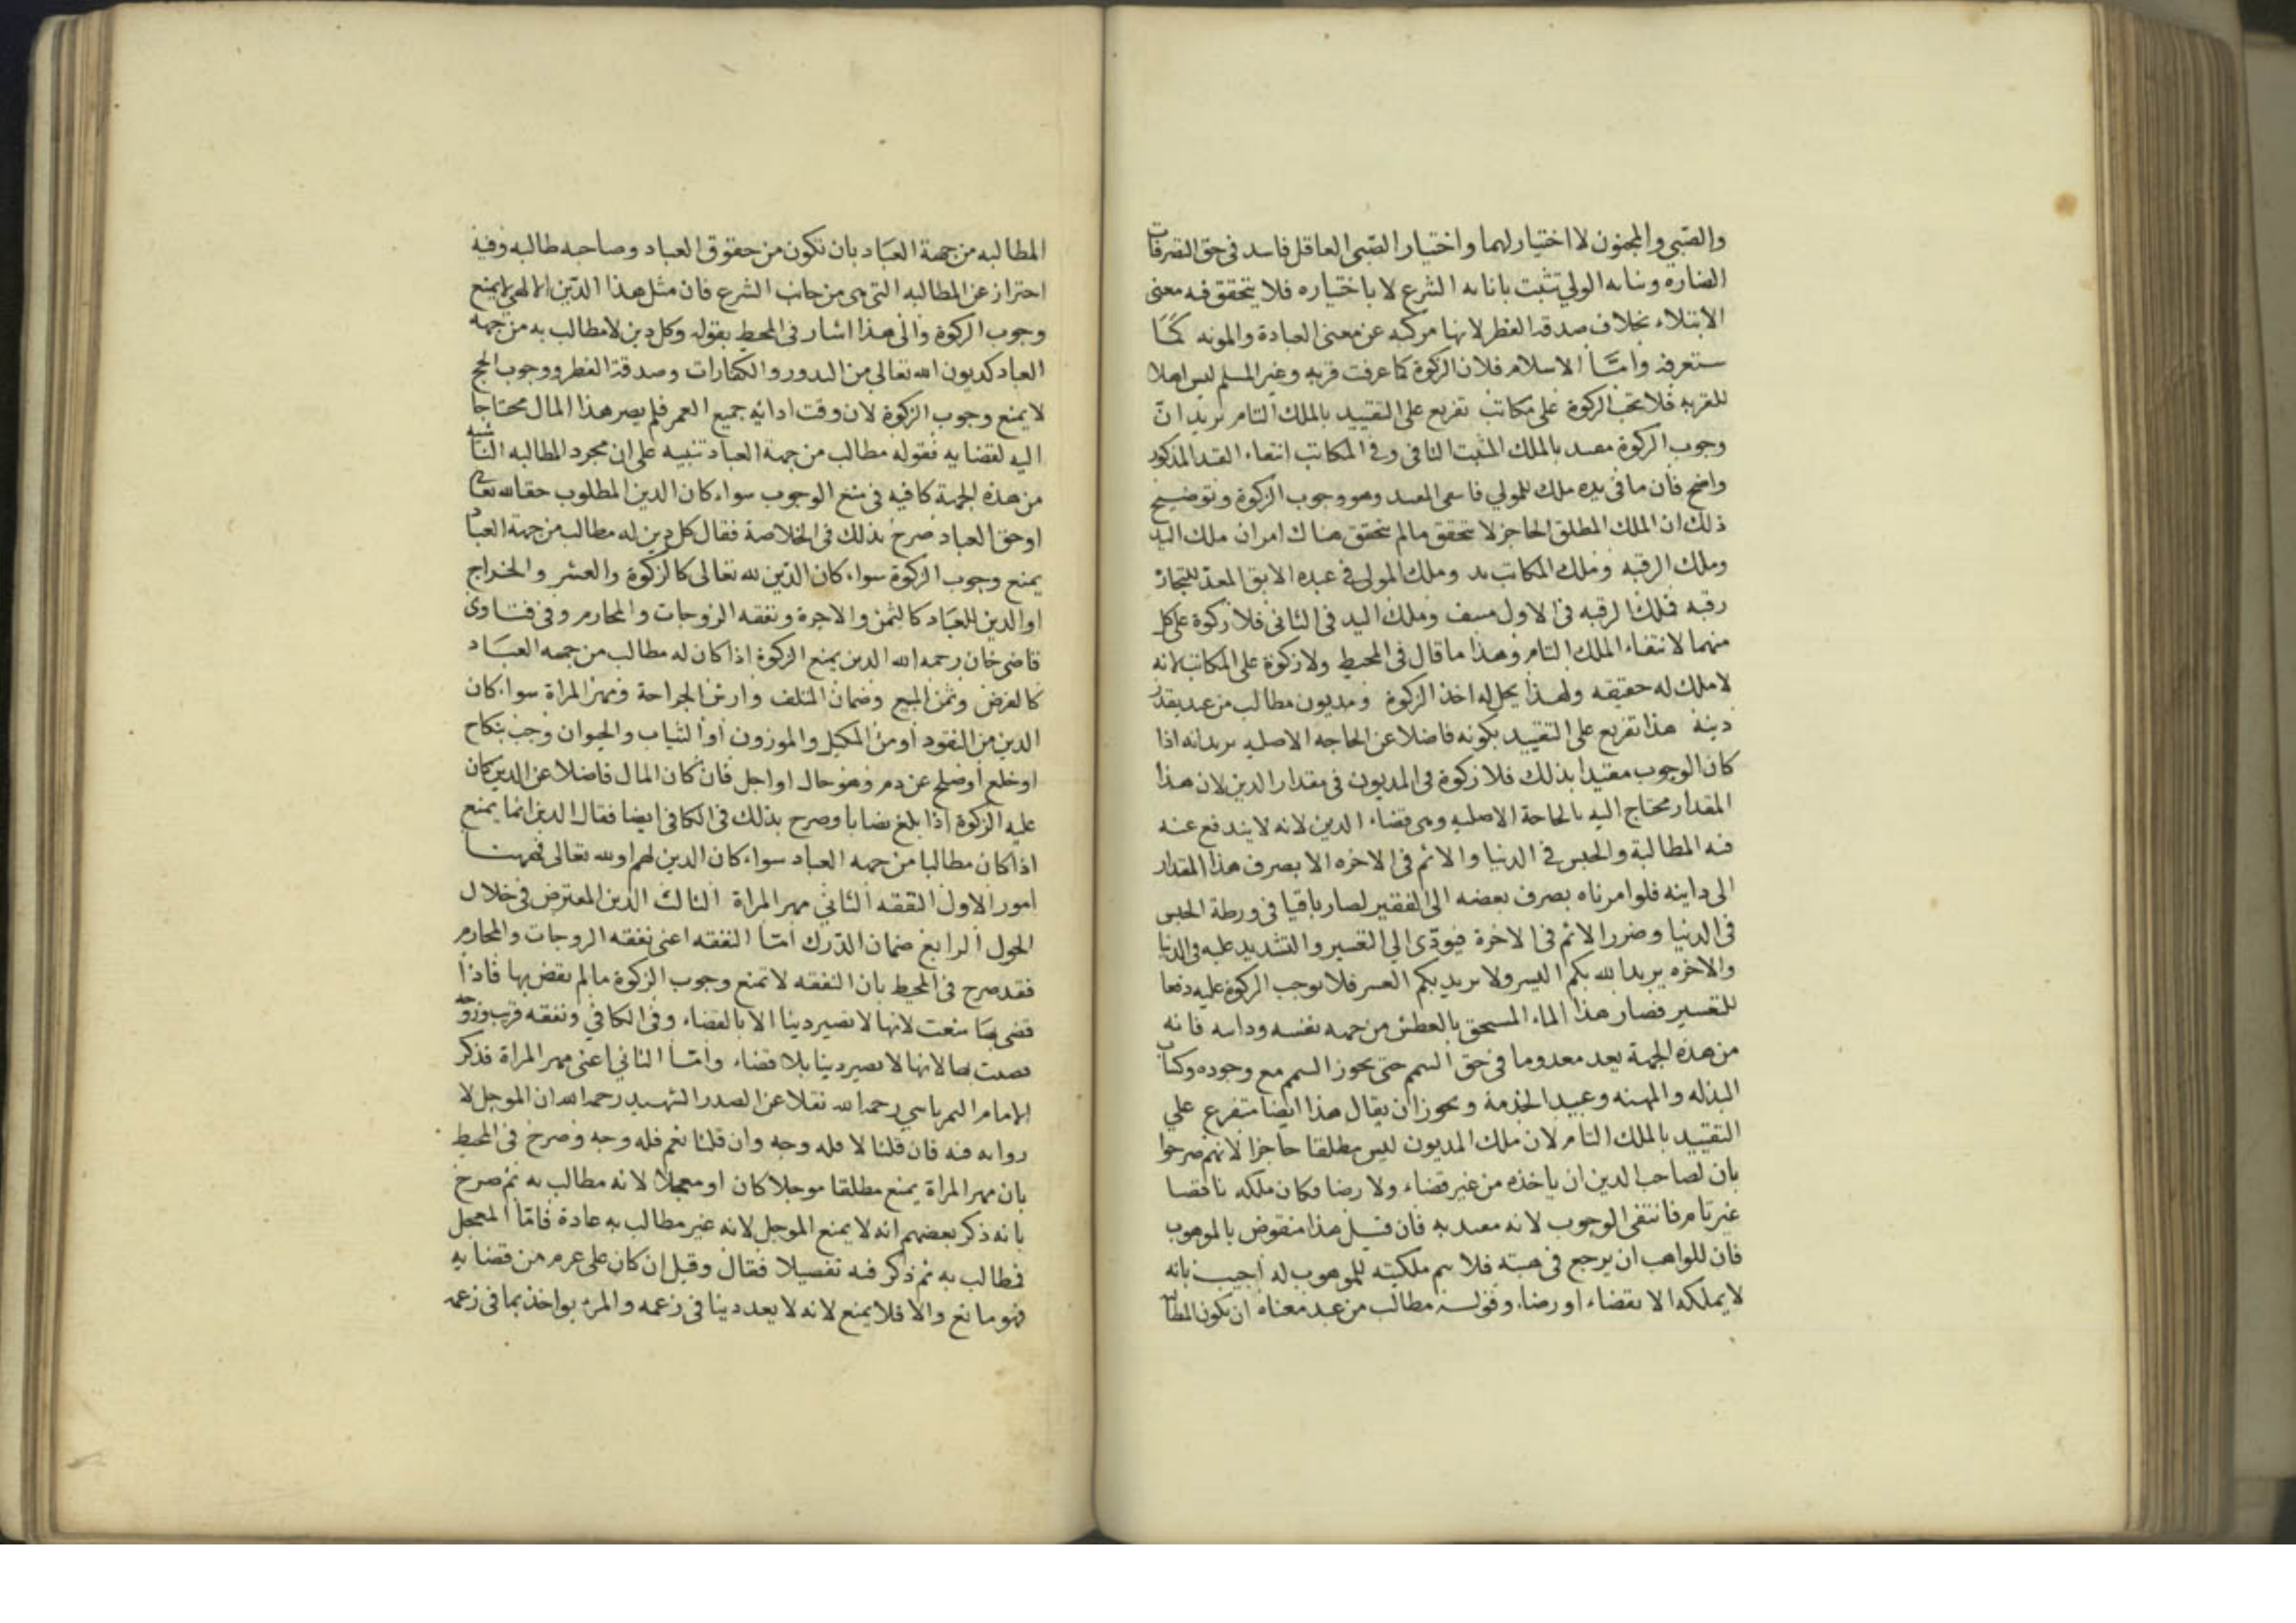 والصبي والمجنون لا اختيار لهما واختيار الصبى العاقل فاسد فى حق التصرفات
الضارة ونيابه الولي تثبت بانابه الشرع لا باختياره فلا يتحقق فيه معنى
الابتلاء بخلاف صدقة الفطر لانها مركبه عن معنى العبادة والمونه كما
ستعرفه واما الاسلام فلان الزكوة كما عرفت قربه وغير المسلم ليس اهلا
للقربه فلا تجب الزكوة على مكاتب تفريع على التقييد بالملك التام يريد ان
وجوب الزكوة مقيد بالملك المثبت النافى وفى المكاتب انتفاء القيد المذكور
واضح فان ما فى يده ملك للمولي فانتفى المقيد وهو وجوب الزكوة وتوضيح
ذلك ان الملك المطلق الحاجز لا يتحقق مالم يتحقق هناك امران ملك اليد
وملك الرقبه وملك المكاتب يد وملك المولى فى عبده الابق المعد للتجارة
رقبه فملك الرقبه فى الاول منتف وملك اليد فى الثانى فلا زكوة على كل
منهما لانتفاء الملك التام وهذا ما قال فى المحيط ولا زكوة على المكاتب لانه
لا ملك له حقيقه ولهذا يحل له اخذ الزكوة ومديون مطالب من عبد بقدر
دينه هذا تفريع على التقييد بكونه فاضلا عن الحاجه الاصليه يريد انه اذا
كان الوجوب مقيدا بذلك فلا زكوة فى المديون فى مقدار الدين لان هذا
المقدار محتاج اليه بالحاجة الاصليه وهى قضاء الدين لانه لا يندفع عنه
فيه المطالبة والحبس فى الدنيا والاثم فى الاخره الا بصرف هذا المقدار
الى داينه فلو امرناه بصرف بعضه الى الفقير لصار باقيا فى ورطة الحبس
فى الدنيا وضرر الاثم فى الاخرة فيودى الي التعسير والتشديد عليه فى الدنيا
والاخره يريد الله بكم اليسر ولا يريد بكم العسر فلا نوجب الزكوة عليه دفعا
للتعسير فصار هذا الماء المستحق بالعطش من جهه نفسه ودابته فانه
من هذه الجهة يعد معدوما فى حق التيمم حتى يجوز التيمم مع وجوده وكثياب
البذله والمهنه وعبيد الخدمة ويجوز ان يقال هذا ايضا متفرع علي
التقييد بالملك التام لان ملك المديون ليس مطلقا حاجزا لانهم صرحوا
بان لصاحب الدين ان ياخذه من غير قضاء ولا رضا فكان ملكه ناقصا
غير تام فانتفى الوجوب لانه مقيد به فان قيل هذا منقوض بالموهوب
فان للواهب ان يرجع فى هبته فلا يتم ملكيته للموهوب له اجيب بانه
لا يملكه الا بقضاء او رضاء وقوله مطالب من عبد معناه ان يكون المطالب
المطالبه من جهة العباد بان تكون من حقوق العباد وصاحبه طالبه وفيه
احتراز عن المطالبه التى هى من جانب الشرع فان مثل هذا الدين الالهي لا يمنع
وجوب الزكوة والى هذا اشار فى المحيط بقوله وكل دين لا مطالب به من جهه
العباد كديون الله تعالي من النذور والكفارات وصدقة الفطر ووجوب الحج
لا يمنع وجوب الزكوة لان وقت ادائه جميع العمر فلم يصر هذا المال محتاجا
اليه لقضايه فقوله مطالب من جهة العباد تنبيه على ان مجرد المطالبه الناشيه
من هذه الجهة كافيه فى منع الوجوب سواء كان الدين المطلوب حقا لله تعالى
او حق العباد صرح بذلك فى الخلاصة فقال كل دين له مطالب من جهة العباد
يمنع وجوب الزكوة سواء كان الدين لله تعالى كالزكوة والعشر والخراج
او الدين للعباد كالثمن والاجرة ونفقه الزوجات والمحارم وفى فتاوى
قاضى خان رحمه الله الدين يمنع الزكوة اذا كان له مطالب من جهه العباد
كالقرض وثمن المبيع وضمان المتلف وارش الجراحة ومهر المراة سواء كان
الدين من النقود او من المكيل والموزون او الثياب والحيوان وجب بنكاح
او خلع او صلح عن دم وهو حال او اجل فان كان المال فاضلا عن الدين كان
عليه الزكوة اذا بلغ نصابا وصرح بذلك فى الكافى ايضا فقال الدين انما يمنع
اذا كان مطالبا من جهه العباد سواء كان الدين لهم او لله تعالى فههنا
امور الاول النفقه الثاني مهر المراة الثالث الدين المعترض فى خلال
الحول الرابع ضمان الدرك اما النفقه اعنى نفقه الزوجات والمحارم
فقد صرح فى المحيط بان النفقه لا تمنع وجوب الزكوة مالم يقض بها فاذا
قضى بها منعت لانها لا تصير دينا الا بالقضاء وفى الكافي ونفقه قريب وزوجه
قضيت بها لانها لا تصير دينا بلا قضاء واما الثاني اعنى مهر المراة فذكر
الامام التمرتاشي رحمه الله نقلا عن الصدر الشهيد رحمه الله ان الموجل لا
روايه فيه فان قلنا لا فله وجه وان قلنا نعم فله وجه وصرح فى المحيط
بان مهر المراة يمنع مطلقا موجلا كان او معجلا لانه مطالب به ثم صرح
بانه ذكر بعضهم انه لا يمنع الموجل لانه غير مطالب به عادة فاما المعجل
فطالب به ثم ذكر فيه تفصيلا فقال وقيل ان كان على عزم من قضايه
فهو مانع والا فلا يمنع لانه لا يعد دينا فى زعمه والمرء يواخذ بما فى زعمه